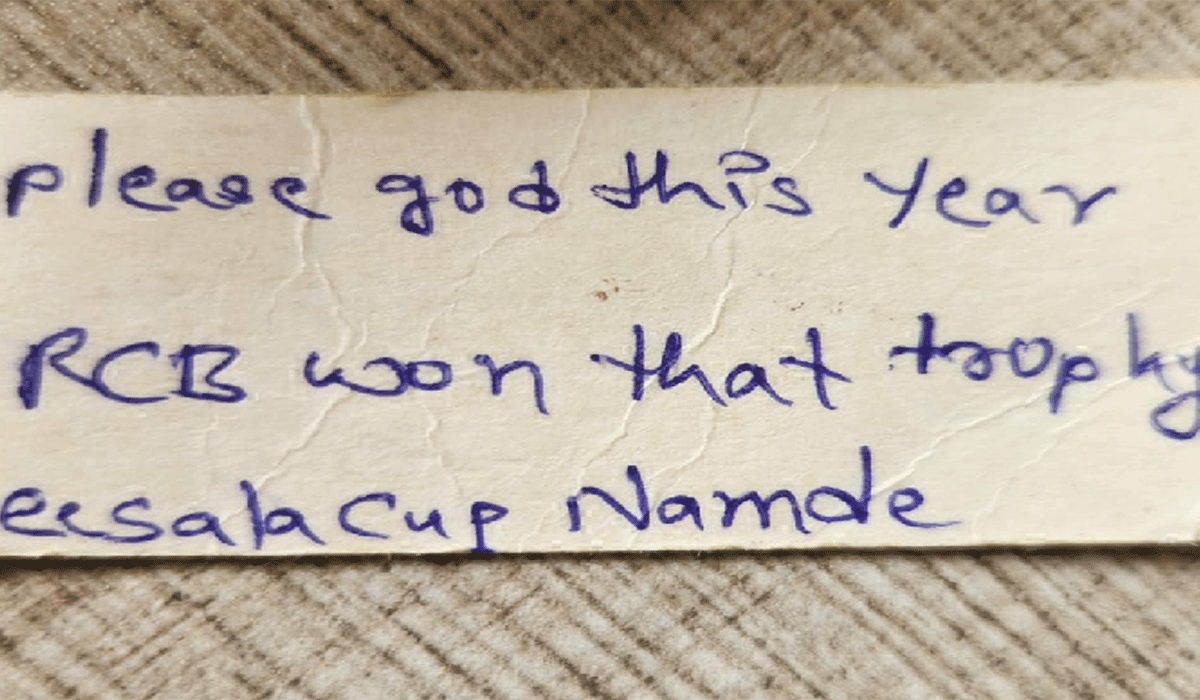 please god this year
RCB won that trophy
eesala cup Namde